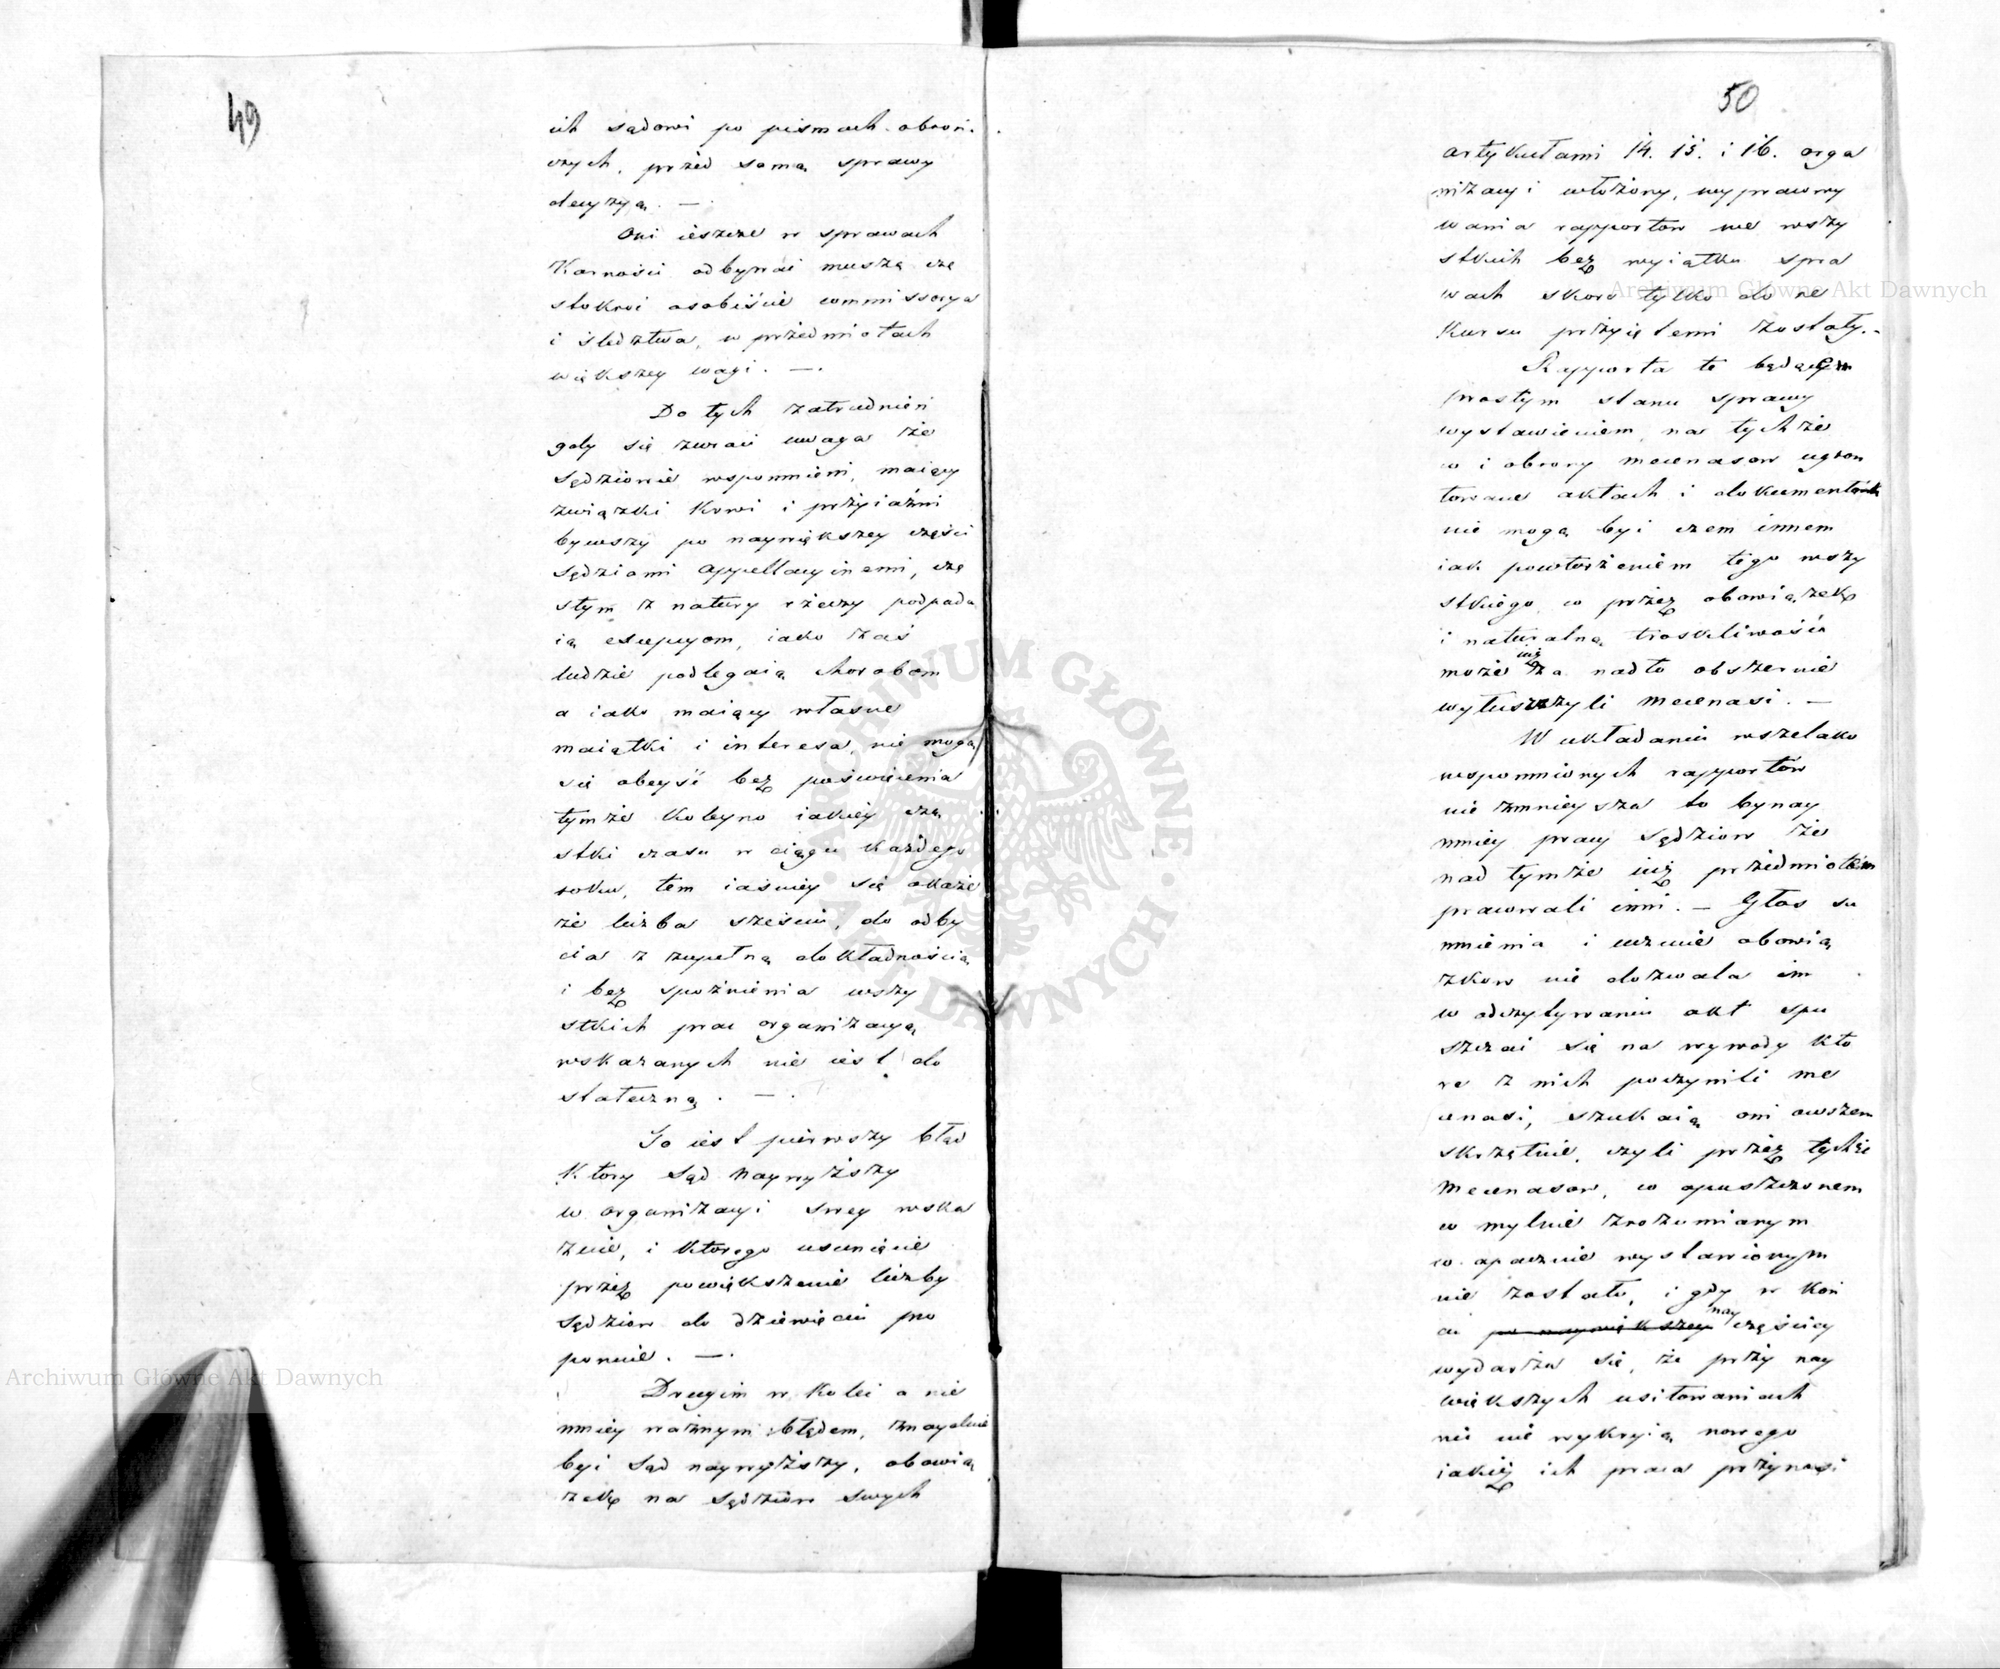 49
ich sądowi po pismach obroń.
czych, przed samą sprawy
decyzyą. —
Oni ieszcze w sprawach
Karności odbywać muszą czę
stokroć osobiście commissorya
i śledztwa, w przedmiotach
większey wagi. —
Do tych zatrudnień
gdy się zwróci uwaga że
Sędziowie wspomnieni, maiący
związki krwi i przyiaźni
bywszy po naywiększey części
Sędziami Appellacyinemi, czę
stym z natury rzeczy podpada
ią excepcyom, iako zaś
ludzie podlegaią chorobom
a iako maiący własne
maiątki i interesa, nie mogą
się obeyść bez poświęcenia
tymże koleyno iakiey czą
stki czasu w ciągu każdego
roku, tem iaśniey się okaże
że liczba sześciu, do odby
cia z zupełną dokładnością
i bez spoźnienia wszy
stkich prac organizacyą
wskazanych nie iest do
stateczną. —
To iest pierwszy błąd
Ktory Sąd Naywyższy
w organizacyi swey wska
zuie, i ktorego usunięcie
przez powiększenie liczby
Sędziow do dziewięciu pro
ponuie. —
Drugim w kolei a nie
mniey ważnym błędem, znayduie
być Sąd naywyższy, obowią
zek na Sędziow swych
50
artykułami 14. 15. i 16. orga
nizacyi włożony, wypracowy
wania rapportow we wszy
stkich bez wyiątku spra
wach skoro tylko do re
kursu przyiętemi zostały. -
Rapporta te będąc
prostym stanu sprawy
wystawieniem, na tychże
co i obrony mecenasow ugron
towane aktach i dokumentach
nie mogą być czem innem
iak powtorzeniem tego wszy
stkiego co przez obowiązek
i naturalną troskliwość
może iuż za nadto obszernie
wyłuszczyli Mecenasi. —
W układaniu wszelako
wspomnionych rapportow
nie zmnieysza to bynay
mniey pracy Sędziow że
nad tymże iuż przedmiotem
pracowali inni. — Głos su
mnienia i uczucie obowią
zkow nie dozwala im
w odczytywaniu akt spu
szczać się na wywody kto
re z nich poczynili me
cenasi, szukaią oni owszem
skrzętnie, czyli przez tychże
Mecenasow, co opuszczonem
co mylnie zrozumianym
co opacznie wystawionym
nie zostało, i gdy w koń
cu po naywiększey nay częściey
wydarza się, że przy nay
większych usiłowaniach
nic nie wykryią nowego
iakiż ich praca przynosi
Archiwum Główne Akt Dawnych
Archiwum Główne Akt Dawnych
ARCHIWUM GŁÓWNE AKT DAWNYCH